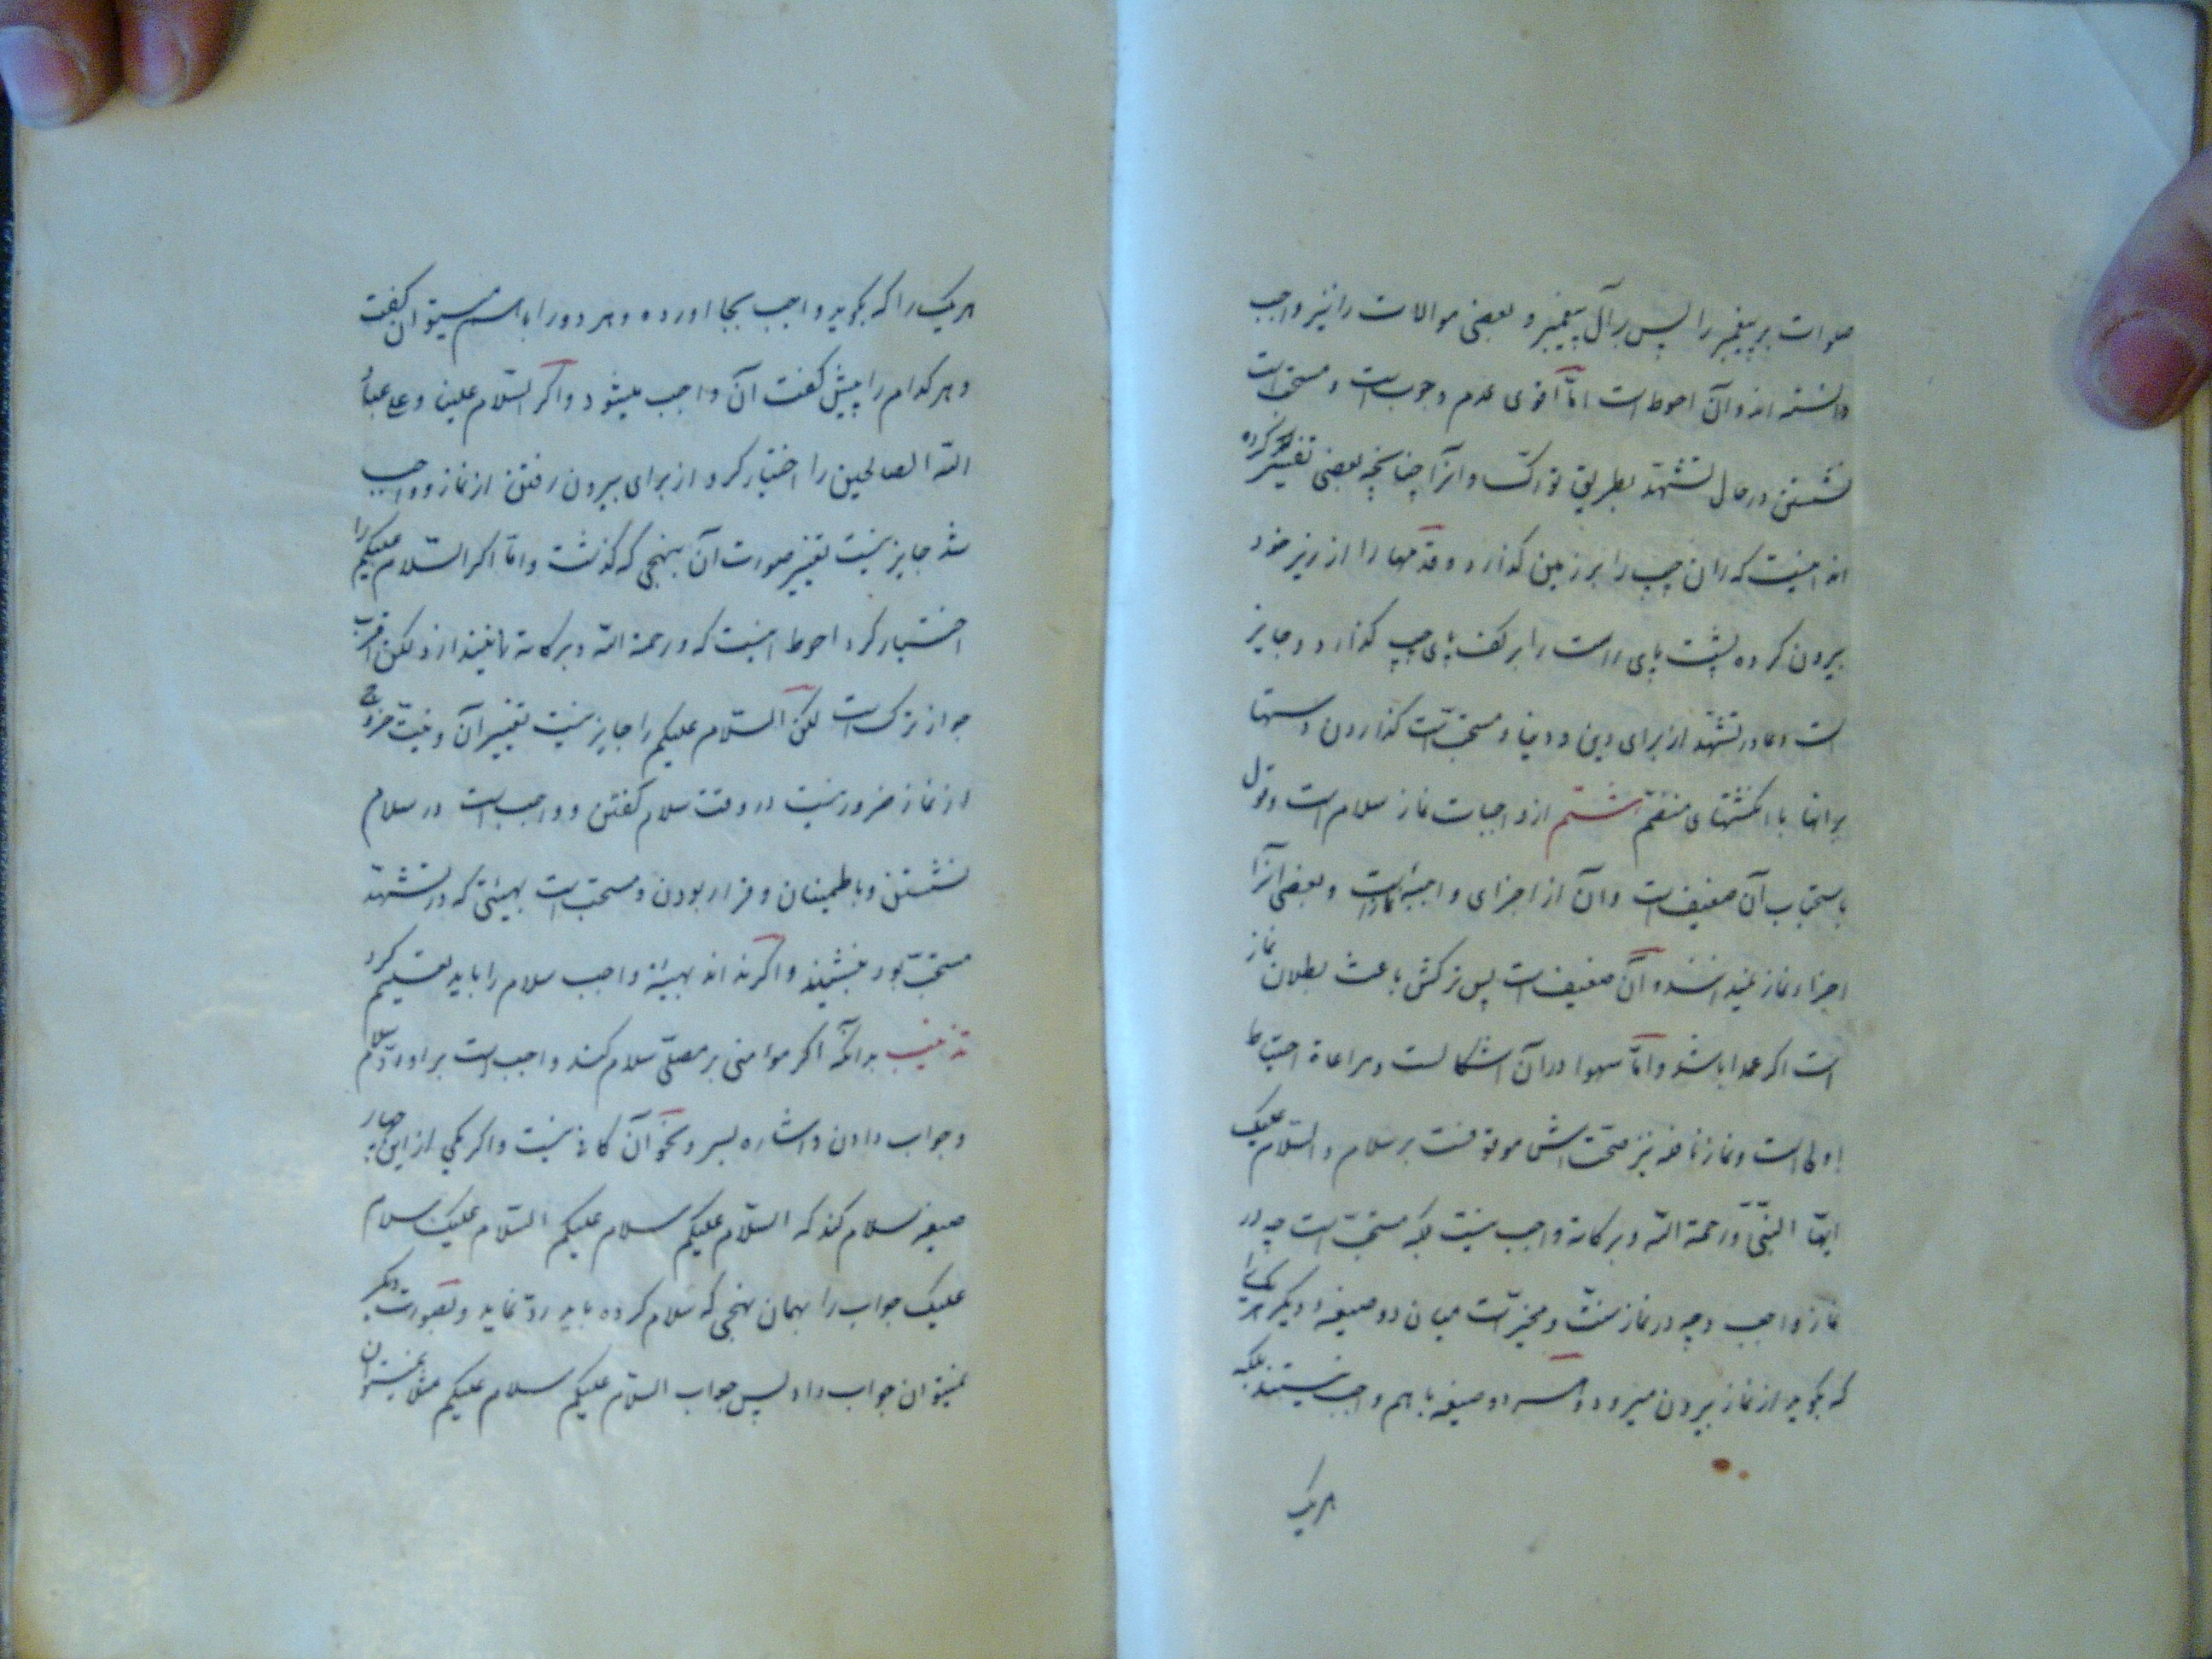 صلوات بر پیغمبر را پس بر آل پیغمبر و بعضی موالات را نیز واجب
دانسته اند و آن احوط است امّا اقوی عدم وجوب است و مستحب است
نشستن در حال تشهّد بطریق تورّک و انرا چنانچه بعضی تفسیر کرده
اند اینست که ران چپ را بر زمین گذارد و قدمها را از زیر خود
بیرون کرده پشت پای راست را بر کف پای چپ گذارد و جایز
است دعا در تشهّد از برای دین و دنیا و مستحبّ است گذاردن دستها
بر رانها با انگشتهای منضمّ هشتم از واجبات نماز سلام است و قول
باستحباب آن ضعیف است و آن از اجزای واجبهٔ نماز است و بعضی آنرا
اجزاء نماز نمیدانند و آن ضعیف است پس ترکش باعث بطلان نماز
است اکر عمدا باشد و امّا سهوا در آن اشکالست و مراعاة احتیاط
اولی است و نماز نافله نیز صحّتش موقوفست بر سلام و السّلام علیک
ایّها النّبیّ و رحمة اللّه و برکاته واجب نیست بلکه مستحبّ است چه در
نماز واجب و چه در نماز سنّت و مخیّر است میان دو صیغه دیکر هر یک را
که بکوید از نماز بیرون میرود و هر دو صیغه با هم واجب نیستند بلکه
هریک
هریک را که بکوید واجب بجا اورده و هر دو را با هم میتوان کفت
و هر کدام را پیش کفت آن واجب میشود و اکر السّلام علینا و علی عباد
اللّه الصالحین را اختیار کرد از برای بیرون رفتن از نماز و واجب
شد جایز نیست تغییر صورت آن بنهجی که کذشت و امّا اکر السّلام علیکم را
اختیار کرد احوط اینست که و رحمة اللّه و برکاته را نیندازد لکن اقرب
جواز ترک است لکن السّلام علیکم را جایز نیست تغییر آن و نیّت خروج
از نماز ضرور نیست در وقت سلام کفتن و واجب است در سلام
نشستن و با طمینان و قرار بودن و مستحب است بهیئتی که در تشهّد
مستحبّ بود بنشیند و اکر نداند بهیئة واجب سلام را باید تعلیم کرد
تذنیب بدانکه اکر مؤمنی بر مصلّی سلام کند واجب است بر او ردّ سلام
و جواب دادن و اشاره بسر و نحو آن کافی نیست و اکر یکی از این چهار
صیغه سلام کند که السّلام علیکم سلام علیکم السّلام علیک سلام
علیک جواب را بهمان نهجی که سلام کرده باید ردّ نماید و بصورت دیکر
نمیتوان جواب داد پس جواب السّلام علیکم سلام علیکم مثلا نمیتوان